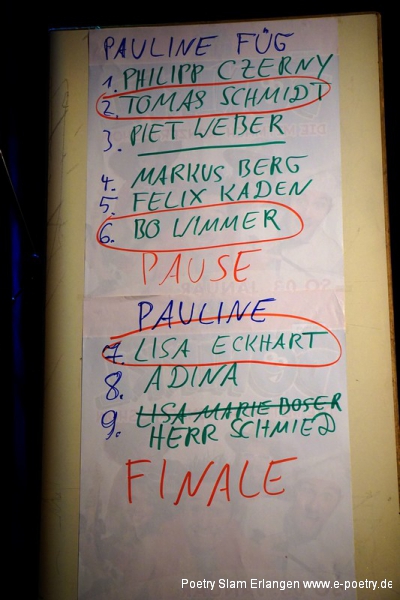 PAULINE FÜG
1. PHILIPP CZERNY
2. TOMAS SCHMIDT
3. PIET WEBER
4. MARKUS BERG
5. FELIX KADEN
6. BO WIMMER
PAUSE
PAULINE
7. LISA ECKHART
8. ADINA
9. LISA MARIE BOSER
HERR SCHMIED
FINALE
Poetry Slam Erlangen www.e-poetry.de